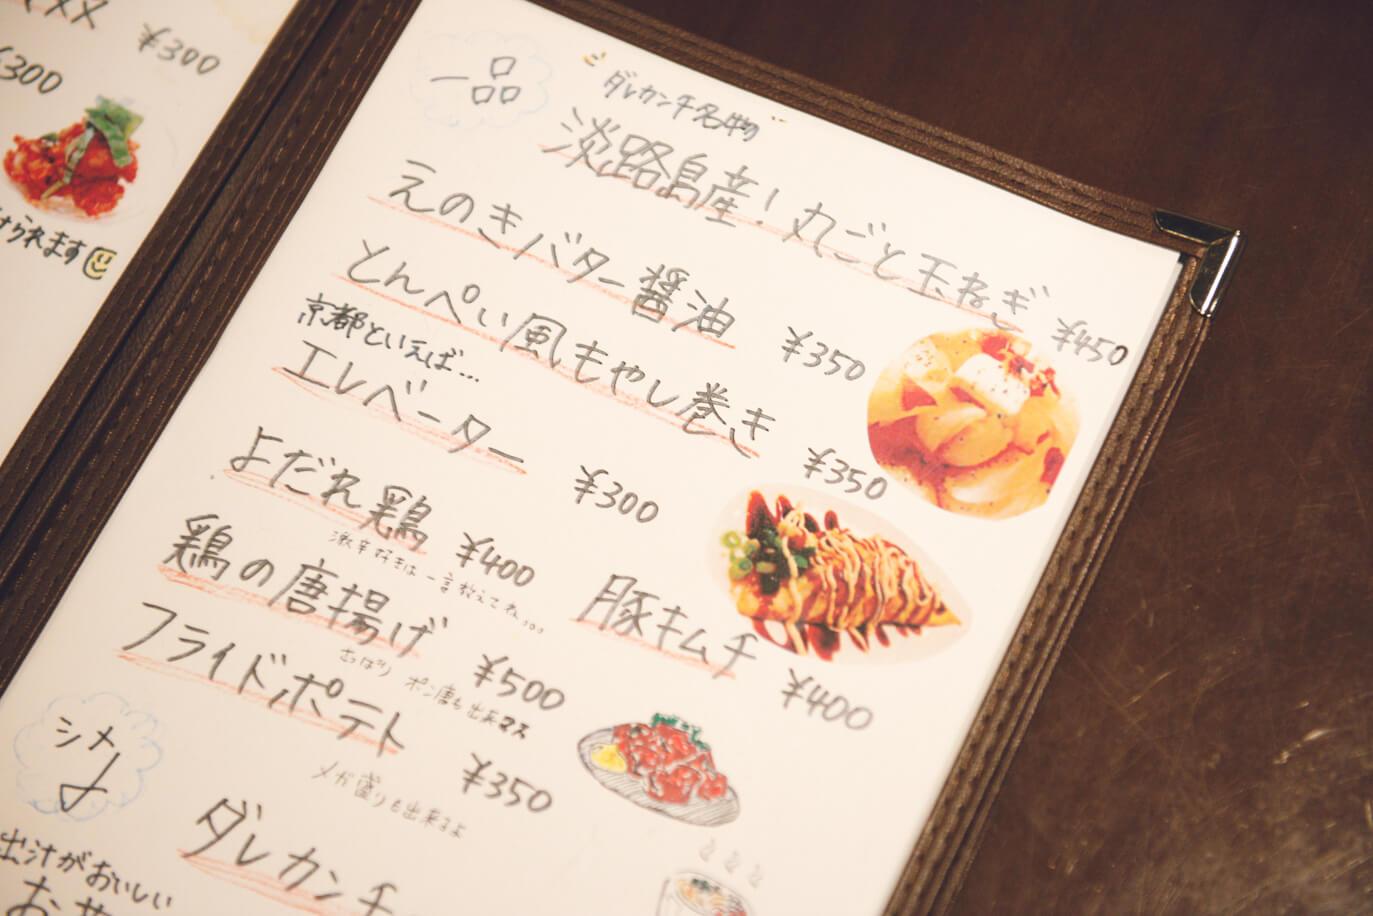 ¥300
¥300
けられます
一品
ダレカンチ名物
淡路島産!丸ごと玉ねぎ ¥450
えのきバター醤油 ¥350
とんぺい風もやし巻き ¥350
京都といえば…
エレベーター ¥300
よだれ鶏 ¥400
激辛好きは一言教えてね。。。
豚キムチ ¥400
鶏の唐揚げ ¥500
さっぱり ポン唐も出来マス
フライドポテト ¥350
メガ盛りも出来るよ
シメ
ダレカンチ
出汁がおいしい